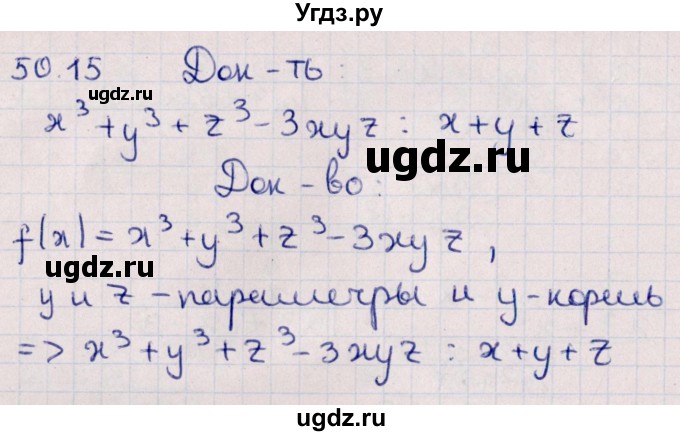 Угдз.ру
50.15 Док-ть:
ugdz.ru
x³+y³+z³-3xyz : x+y+z
ugdz.ru
Док-во:
f(x)=x³+y³+z³-3xyz,
ugdz.ru
y и z - параметры и y-корень
=> x³+y³+z³-3xyz : x+y+z
ugdz.ru
ugdz.ru